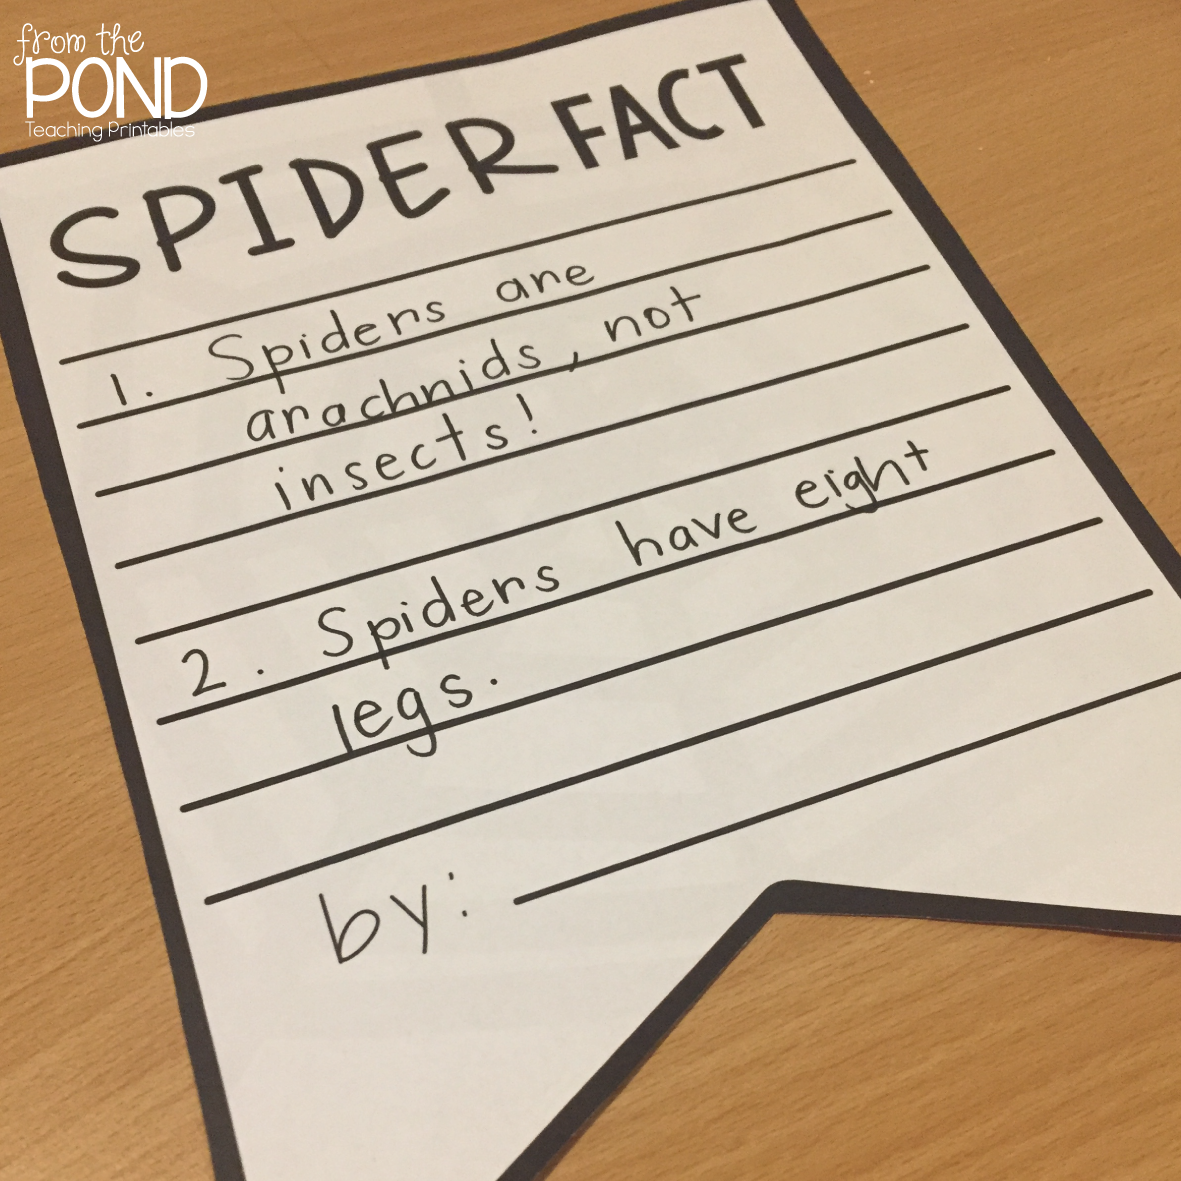 from the
POND
Teaching Printables
SPIDER FACT
1. Spiders are
arachnids, not
insects!
2. Spiders have eight
legs.
by: